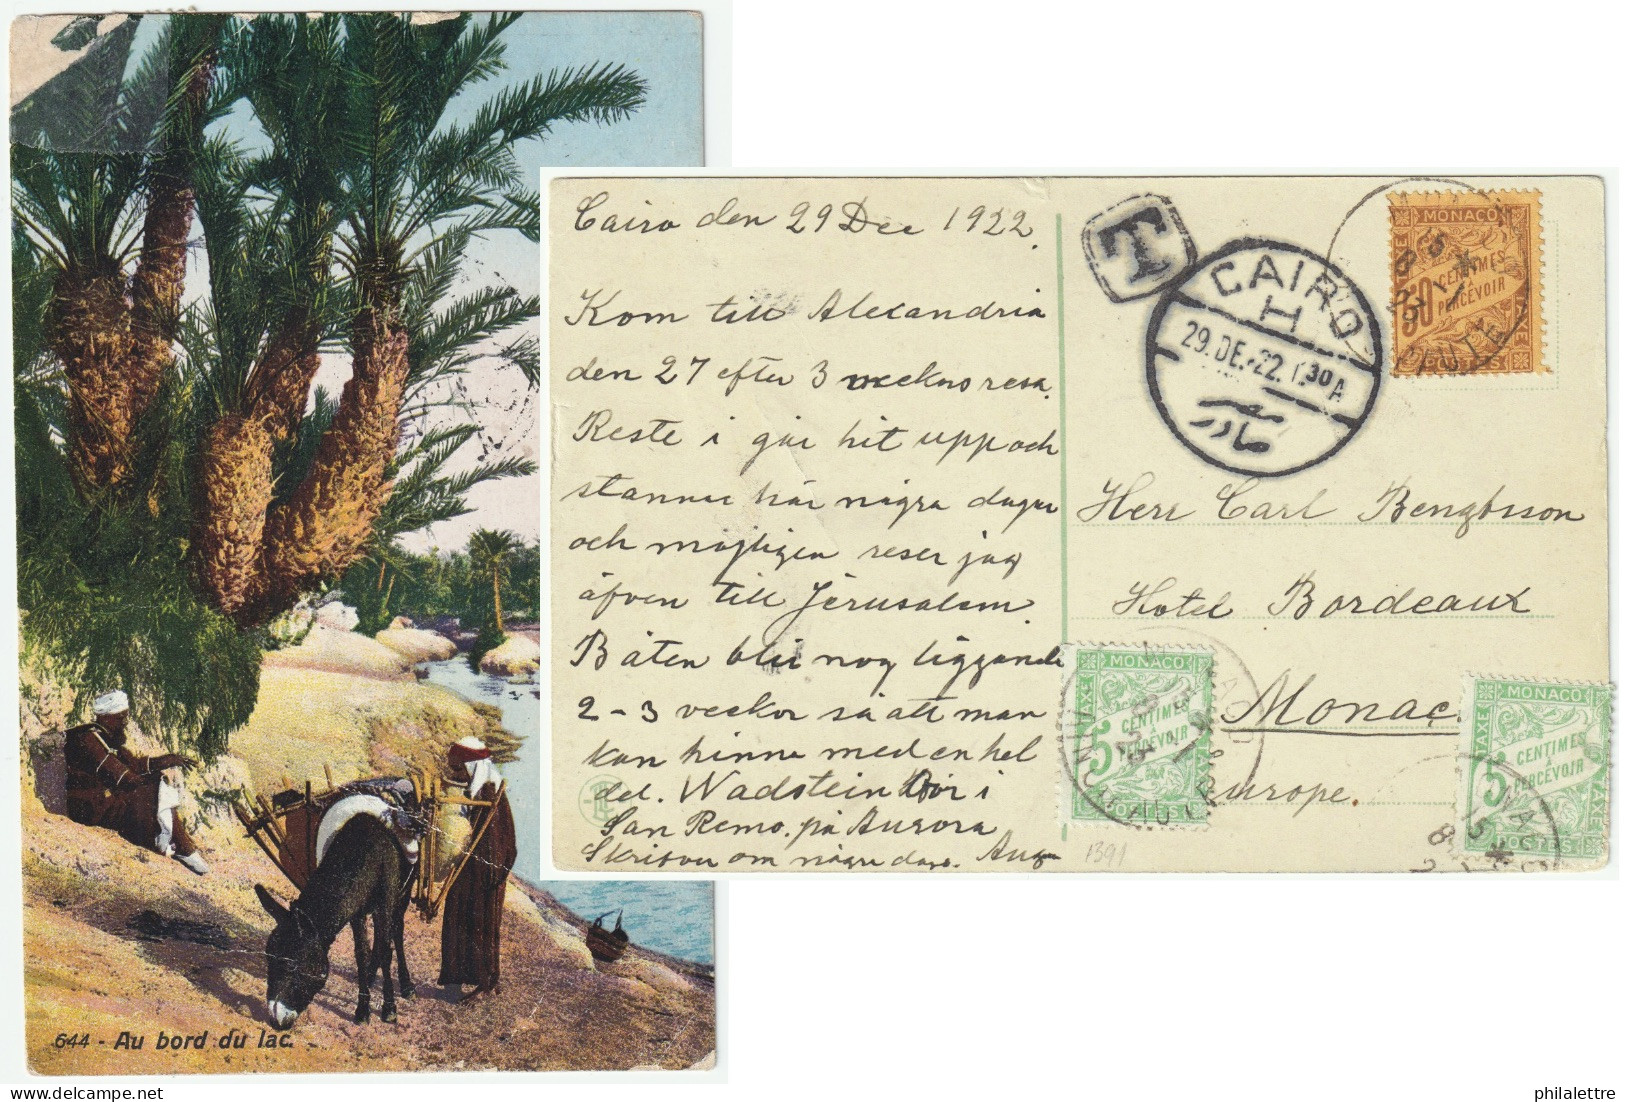 644 - Au bord du lac.
Cairo den 29 Dec 1922.
Kom till Alexandria
den 27 efter 3 veckors resa.
Reste i går hit upp och
stannar här några dagar
och möjligen reser jag
äfven till Jerusalem.
Båten blir nog liggande
2-3 veckor så att man
kan hinna med en hel
del. Wadstein bor i
San Remo. på Aurora
Skrifver om några dagar. Aug
T
CAIRO
H
29.DE.22.1.30A
MONACO
50 CENTIMES
À PERCEVOIR
POSTES
TAXE
Herr Carl Bengtsson
Hotel Bordeaux
Monac
Europe.
MONACO
5 CENTIMES
À PERCEVOIR
POSTES
TAXE
MONACO
5 CENTIMES
À PERCEVOIR
POSTES
TAXE
1391
philalettre